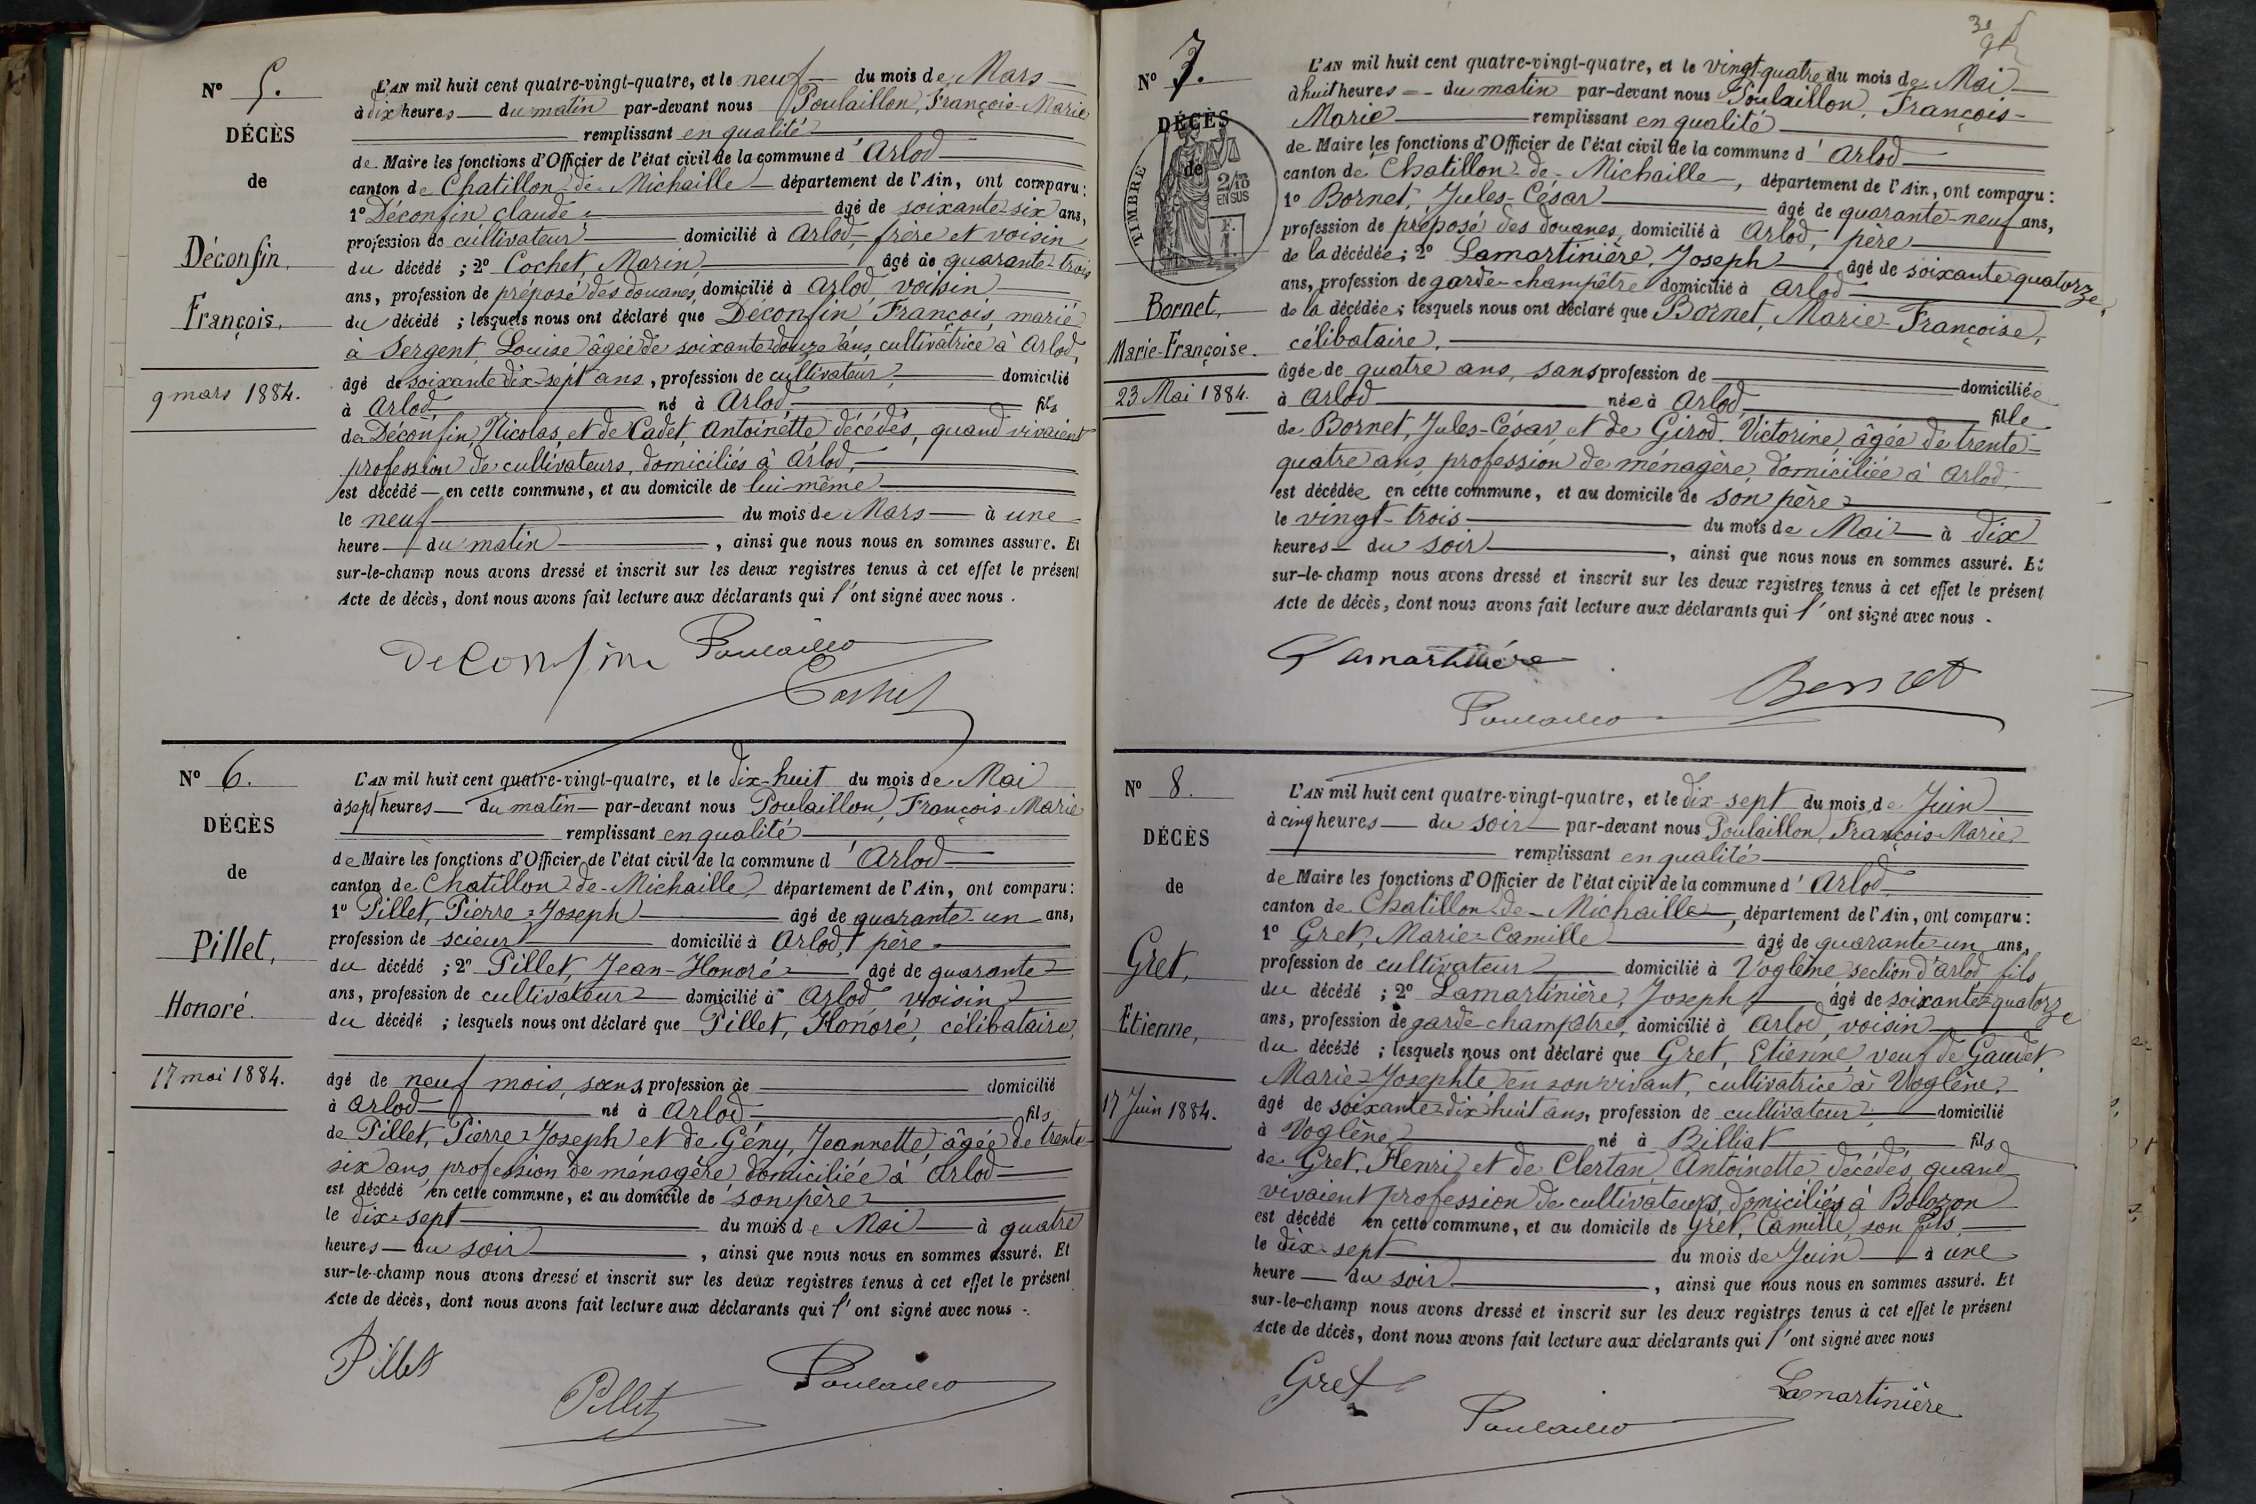 N° 5.
DÉCÈS
de
Déconfin,
François,
9 mars 1884.
L'AN mil huit cent quatre-vingt-quatre, et le neuf du mois de Mars
à dix heures du matin par-devant nous Poulaillon, François-Marie
remplissant en qualité
de Maire les fonctions d'Officier de l'état civil de la commune d'Arlod
canton de Chatillon-de-Michaille département de l'Ain, ont comparu :
1° Déconfin Claude âgé de soixante-six ans,
profession de cultivateur domicilié à Arlod, frère et voisin
du décédé ; 2° Cochet, Marin, âgé de quarante-trois
ans, profession de préposé des douanes, domicilié à Arlod, voisin
du décédé ; lesquels nous ont déclaré que Déconfin, François, marié
à Sergent, Louise âgée de soixante douze ans, cultivatrice à Arlod,
âgé de soixante dix-sept ans, profession de cultivateur, domicilié
à Arlod, né à Arlod, fils
de Déconfin, Nicolas, et de Cadet, Antoinette décédés, quand vivaient
profession de cultivateurs, domiciliés à Arlod,
est décédé en cette commune, et au domicile de lui même
le neuf du mois de Mars à une
heure du matin, ainsi que nous nous en sommes assuré. Et
sur-le-champ nous avons dressé et inscrit sur les deux registres tenus à cet effet le présent
Acte de décès, dont nous avons fait lecture aux déclarants qui l'ont signé avec nous.
Deconfin Poulaillo
Cochet
N° 6.
DÉCÈS
de
Pillet,
Honoré.
17 mai 1884.
L'AN mil huit cent quatre-vingt-quatre, et le dix-huit du mois de Mai
à sept heures du matin par-devant nous Poulaillon, François-Marie
remplissant en qualité
de Maire les fonctions d'Officier de l'état civil de la commune d'Arlod
canton de Chatillon-de-Michaille, département de l'Ain, ont comparu :
1° Pillet, Pierre-Joseph âgé de quarante-un ans,
profession de scieur domicilié à Arlod, père
du décédé ; 2° Pillet, Jean-Honoré âgé de quarante
ans, profession de cultivateur domicilié à Arlod voisin
du décédé ; lesquels nous ont déclaré que Pillet, Honoré, célibataire,
âgé de neuf mois, sans profession de domicilié
à Arlod né à Arlod fils
de Pillet, Pierre-Joseph et de Gény, Jeannette, âgée de trente-
six ans, profession de ménagère, domiciliée à Arlod
est décédé en cette commune, et au domicile de son père
le dix-sept du mois de Mai à quatre
heures du soir, ainsi que nous nous en sommes assuré. Et
sur-le-champ nous avons dressé et inscrit sur les deux registres tenus à cet effet le présent
Acte de décès, dont nous avons fait lecture aux déclarants qui l'ont signé avec nous.
Pillet
Pillet
Poulaillo
N° 7.
DÉCÈS
de
TIMBRE
2/10
EN SUS
F.
1
Bornet,
Marie-Françoise.
23 Mai 1884.
L'AN mil huit cent quatre-vingt-quatre, et le vingt-quatre du mois de Mai
à huit heures du matin par-devant nous Poulaillon, François-
Marie remplissant en qualité
de Maire les fonctions d'Officier de l'état civil de la commune d'Arlod
canton de Chatillon-de-Michaille, département de l'Ain, ont comparu :
1° Bornet, Jules-César âgé de quarante-neuf ans,
profession de préposé des douanes domicilié à Arlod, père
de la décédée ; 2° Lamartinière, Joseph âgé de soixante quatorze
ans, profession de garde-champêtre domicilié à Arlod
de la décédée ; lesquels nous ont déclaré que Bornet, Marie-Françoise,
célibataire,
âgée de quatre ans, sans profession de domiciliée
à Arlod née à Arlod, fille
de Bornet, Jules-César, et de Girod, Victorine, âgée de trente-
quatre ans, profession de ménagère, domiciliée à Arlod,
est décédée en cette commune, et au domicile de son père
le vingt-trois du mois de Mai à dix
heures du soir, ainsi que nous nous en sommes assuré. Et
sur-le-champ nous avons dressé et inscrit sur les deux registres tenus à cet effet le présent
Acte de décès, dont nous avons fait lecture aux déclarants qui l'ont signé avec nous.
Lamartinière
Poulaillo Bornet
N° 8.
DÉCÈS
de
Gret,
Etienne,
17 Juin 1884.
L'AN mil huit cent quatre-vingt-quatre, et le dix-sept du mois de Juin
à cinq heures du soir par-devant nous Poulaillon, François-Marie
remplissant en qualité
de Maire les fonctions d'Officier de l'état civil de la commune d'Arlod
canton de Chatillon-de-Michaille, département de l'Ain, ont comparu :
1° Gret, Marie-Camille âgé de quarante-un ans,
profession de cultivateur domicilié à Voglène section d'Arlod fils
du décédé ; 2° Lamartinière, Joseph âgé de soixante-quatorze
ans, profession de garde-champêtre, domicilié à Arlod, voisin
du décédé ; lesquels nous ont déclaré que Gret, Etienne veuf de Gaudet,
Marie-Josephte en son vivant, cultivatrice à Voglène,
âgé de soixante-dix huit ans, profession de cultivateur, domicilié
à Voglène né à Billiat fils
de Gret, Henri et de Clertan, Antoinette, décédés, quand
vivaient profession de cultivateurs, domiciliés à Bolozon
est décédé en cette commune, et au domicile de Gret, Camille, son fils
le dix-sept du mois de Juin à une
heure du soir, ainsi que nous nous en sommes assuré. Et
sur-le-champ nous avons dressé et inscrit sur les deux registres tenus à cet effet le présent
Acte de décès, dont nous avons fait lecture aux déclarants qui l'ont signé avec nous
Gret
Poulaillo
Lamartinière